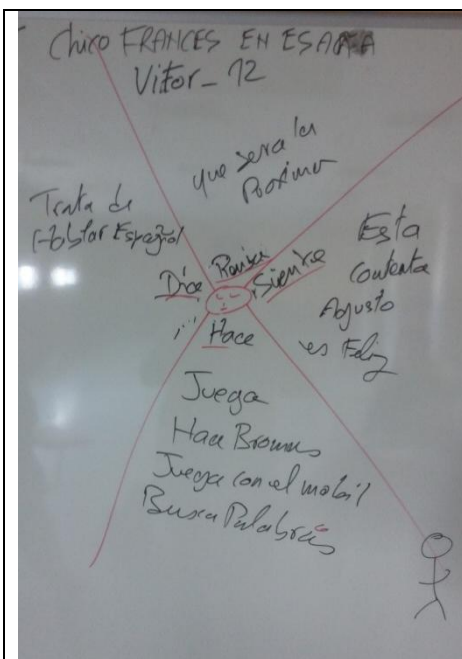 Chico FRANCES EN ESAÑA
Vitor_ 12
que sera la
Proxima
Trata de
Hablar Español
Esta
Contenta
Agusto
es Feliz
Dice
Piensa
Siente
Hace
Juega
Hace Bromas
Juega con el mobil
Busca Palabras